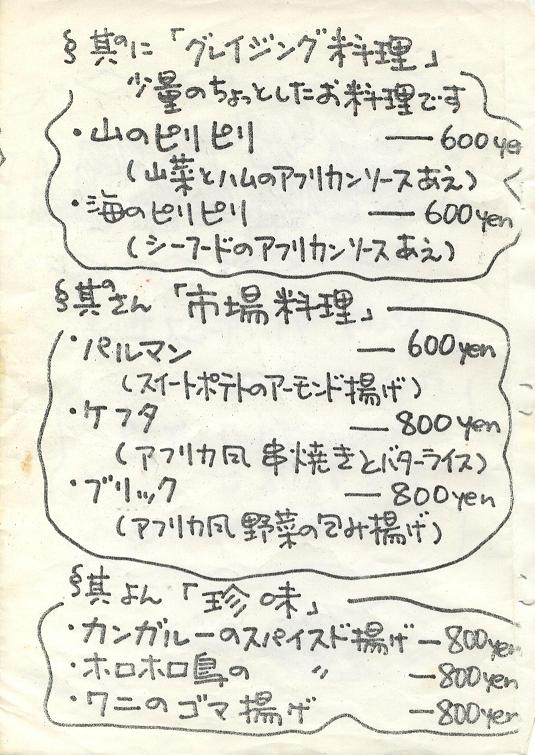 §其のに「グレイジング料理」
少量のちょっとしたお料理です
・山のピリピリ ― 600ye
(山菜とハムのアフリカンソースあえ)
・海のピリピリ ― 600yen
(シーフードのアフリカンソースあえ)
§其のさん「市場料理」
・パルマン ― 600yen
(スイートポテトのアーモンド揚げ)
・ケフタ ― 800yen
(アフリカ風 串焼きとバターライス)
・ブリック ― 800yen
(アフリカ風 野菜の包み揚げ)
§其よん「珍味」
・カンガルーのスパイスド揚げ ― 800yen
・ホロホロ鳥の 〃 ― 800yen
・ワニのゴマ揚げ ― 800yen